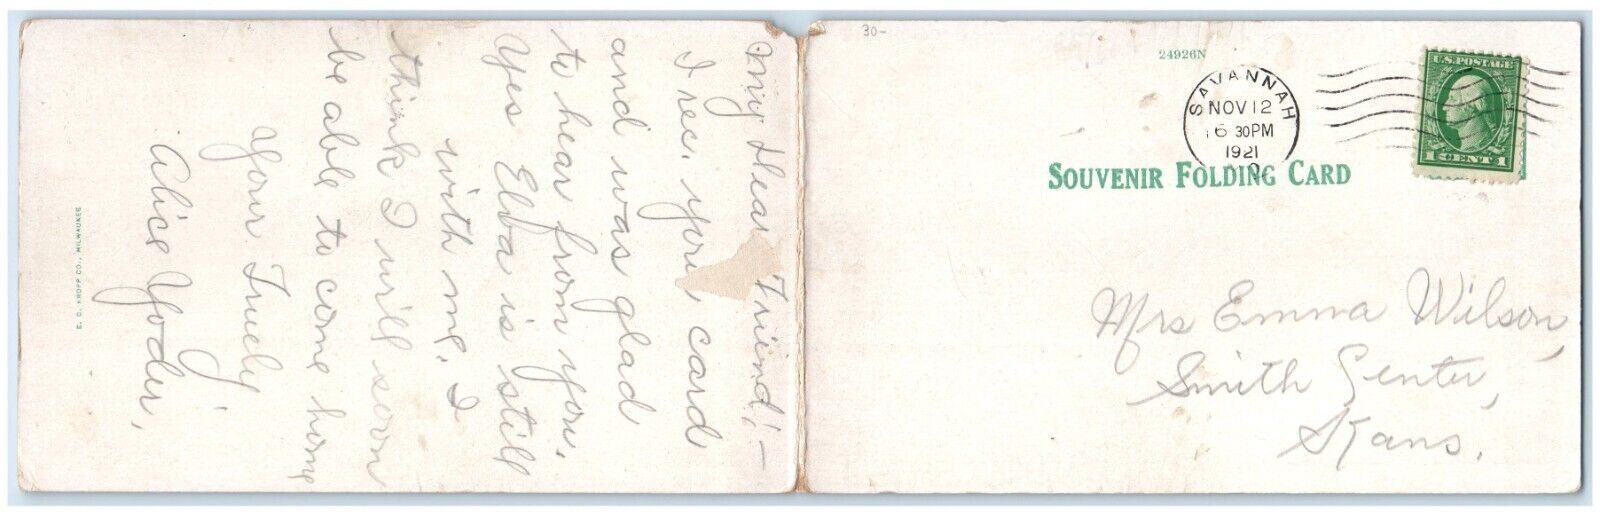 My Dear Friend!—
I rec. your card
and was glad
to hear from you.
Yes Elva is still
with me. I
think I will soon
be able to come home
Your Truely
Alice Yoder,
E. C. KROPP CO., MILWAUKEE
30-
24926N
SAVANNAH
NOV 12
6 30PM
1921
U.S. POSTAGE
1 CENT 1
SOUVENIR FOLDING CARD
Mrs Emma Wilson,
Smith Center,
Kans.